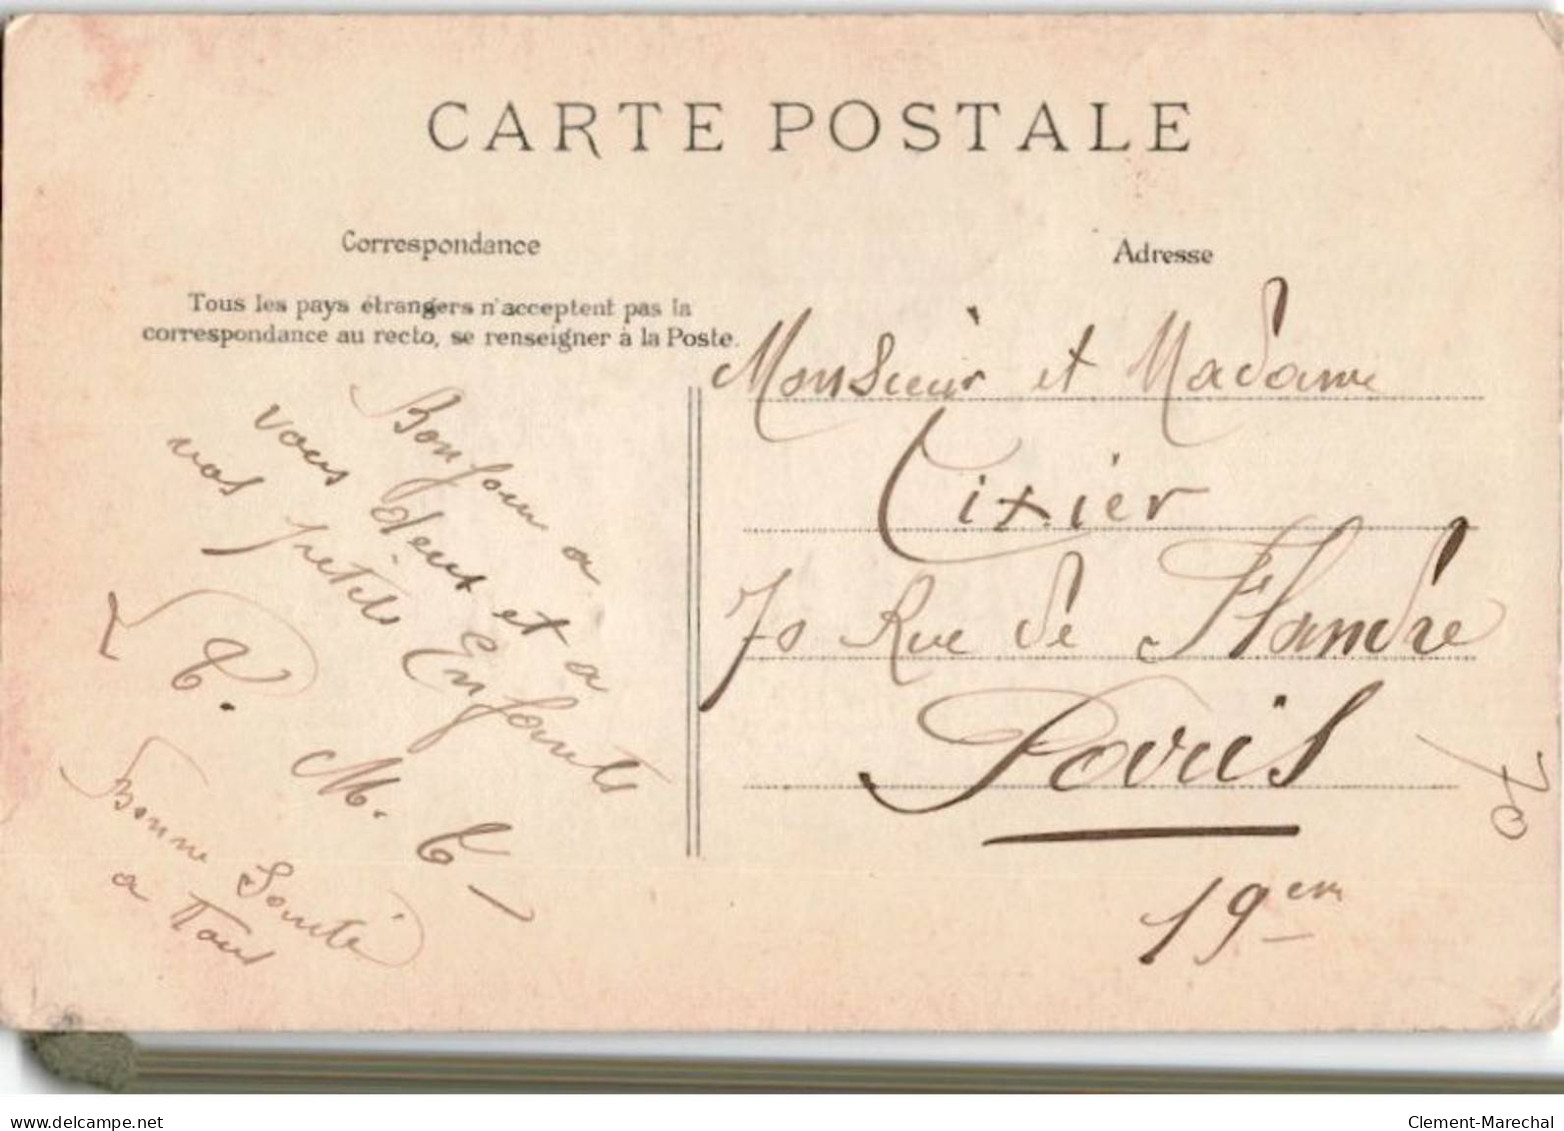 CARTE POSTALE
Correspondance
Tous les pays étrangers n'acceptent pas la
correspondance au recto, se renseigner à la Poste.
Bonjour a
vous deux et a
vos petits Enfants
M.
Bonne Santé
a Tous
Adresse
Monsieur et Madame
Tixier
70 Rue de Flandre
Paris
19em
70
www.delcampe.net
Clement-Marechal